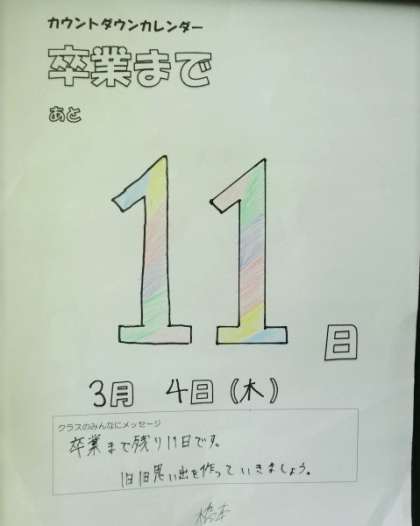 カウントダウンカレンダー
卒業まで
あと
11
日
3月 4日(木)
クラスのみんなにメッセージ
卒業まで残り11日です。
1日1日思い出を作っていきましょう。